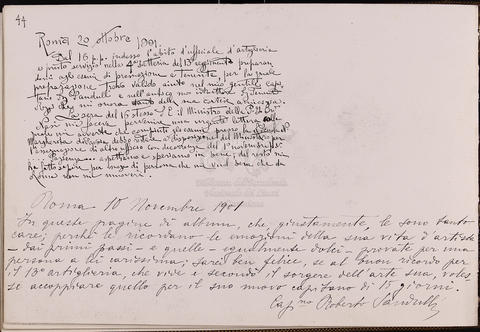 44
Roma 20 ottobre 1901.
Dal 16 p.p. indosso l'abito d'ufficiale d'artiglieria
e presto servizio nella 4a batteria del 13° reggimento preparan
domi agli esami di promozione a Tenente, per la quale
preparazione trovo valido aiuto nel mio gentile capi
tano
che mi onora tanto della sua cortese amicizia.
La sera del 15 stesso S. E. il Ministro della P. Istr.
Nasi mi faceva pervenire una urgente lettera colla
quale mi avverte che
Margherita
1° novembre
e speriamo in bene; del resto mi
di persona che mi vuol bene che da
Roma non mi muoverò.
Roma 10 Novembre 1901
In queste pagine di album, che, giustamente, le sono tanto
care, perchè le ricordano le emozioni della sua vita d'artista
– dai primi passi – e quelle – egualmente dolci – provate per una
persona a lei carissima; sarei ben felice, se al buon ricordo per
il 13° artiglieria, che vide e secondò il sorgere dell'arte sua, volesse
accoppiare quello per il suo nuovo capitano di 15 giorni.
Cap.no Roberto Sandulli